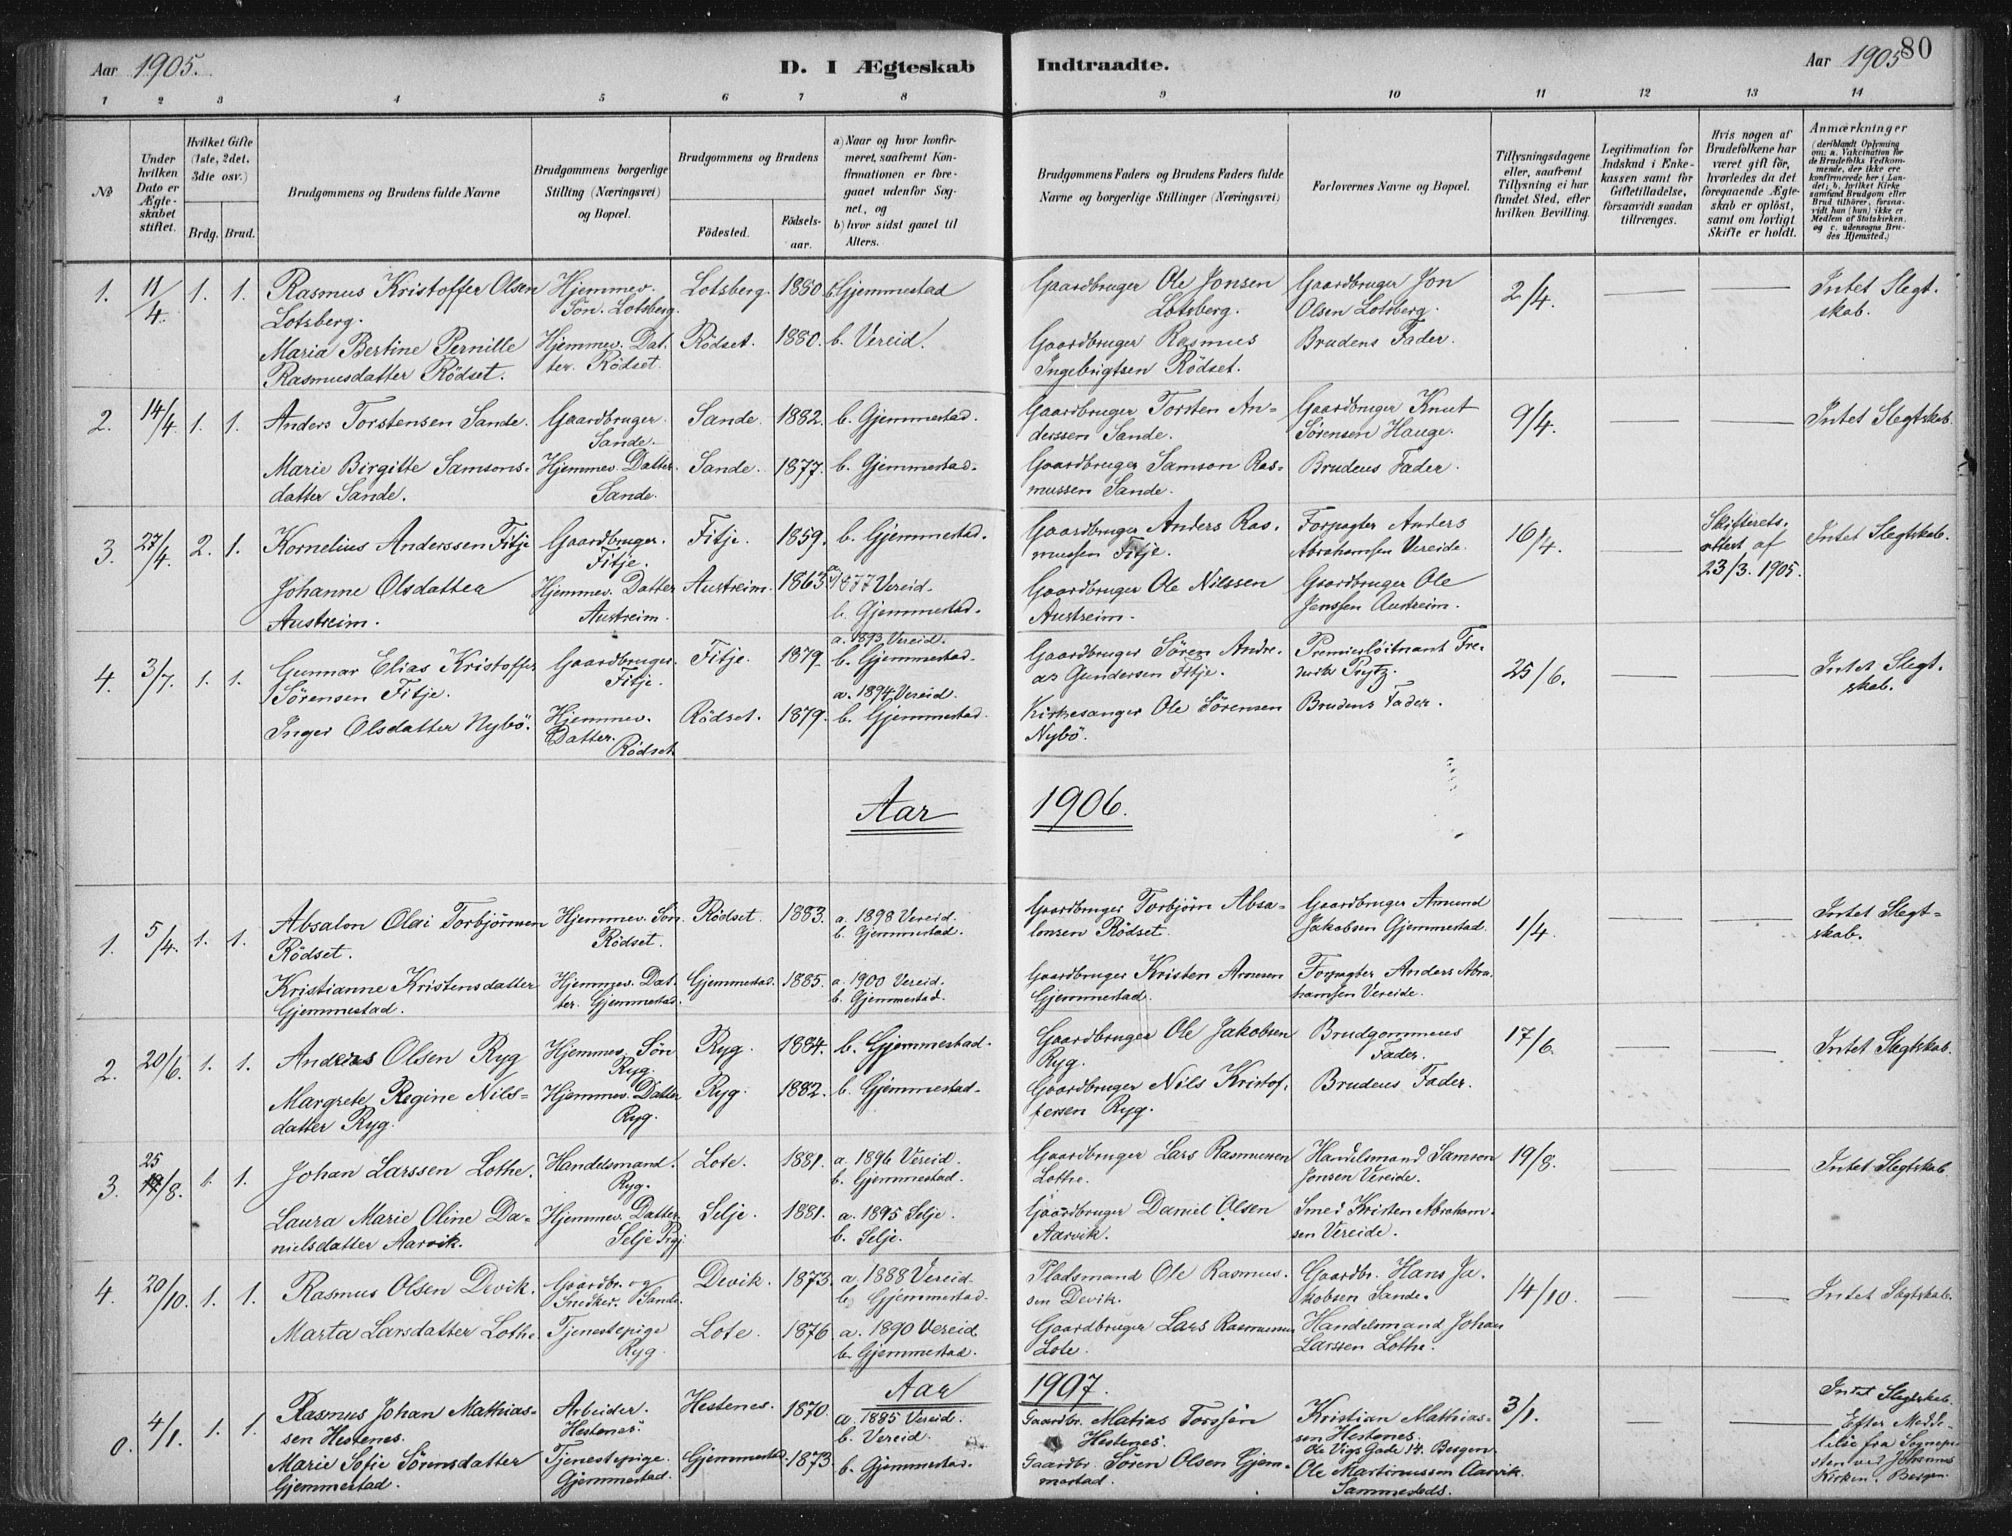 Aar 1905.
D. I Ægteskab Indtraadte.
Aar 1905 80
1 2 3 4 5 6 7 8 9 10 11 12 13 14
No
Under hvilken Dato er Ægteskabet stiftet.
Hvilket Gifte (1ste, 2det, 3die osv.)
Brdg. Brud.
Brudgommens og Brudens fulde Navne
Brudgommens borgerlige Stilling (Næringsvei) og Bopæl.
Brudgommens og Brudens
Födested.
Födsels-aar.
a) Naar og hvor konfirmeret, saafremt Konfirmationen er foregaaet udenfor Sognet, og
b) hvor sidst gaaet til Alters.
Brudgommens Faders og Brudens Faders fulde Navne og borgerlige Stillinger (Næringsvei)
Forlovernes Navne og Bopæl.
Tillysningsdagene eller, saafremt Tillysning ei har fundet Sted, efter hvilken Bevilling.
Legitimation for Indskud i Enkekassen samt for Giftetilladelse, forsaavidt saadan tiltrænges.
Hvis nogen af Brudefolkene har været gift för, hvorledes da det foregaaende Ægteskab er oplöst, samt om lovligt Skifte er holdt.
Anmærkninger (deriblandt Oplysning om: a. Vakcination for de Brudefolks Vedkommende, der ikke ere konfirmerede her i Landet; b. hvilket Kirkesamfund Brudgom eller Brud tilhörer, forsaavidt han (hun) ikke er Medlem af Statskirken, og c. udensogns Brudes Hjemsted.)
1. 11/4. 1. 1. Rasmus Kristoffer Olsen Lotsberg. Hjemmev. Søn. Lotsberg. Lotsberg. 1880 b. Gjemmestad Gaardbruger Ole Jonsen Lotsberg. Gaardbruger Jon Olsen Lotsberg. 2/4. Intet Slegtskab.
Maria Bertine Pernille Rasmusdatter Rödset. Hjemmev. Datter. Rödset. Rödset. 1880. b. Vereid. Gaardbruger Rasmus Ingebrigtsen Rödset. Brudens Fader.
2. 14/4. 1. 1. Anders Torstensen Sande. Gaardbruger. Sande. Sande. 1882. b. Gjemmestad. Gaardbruger Torsten Anderssen Sande. Gaardbruger Knut Sørensen Hauge. 9/4. Intet Slegtskab.
Marie Birgitte Samsonsdatter Sande. Hjemmev. Datter. Sande. Sande. 1877. b. Gjemmestad. Gaardbruger Samson Rasmussen Sande. Brudens Fader.
3. 27/4. 2. 1. Kornelius Anderssen Fitje Gaardbruger. Fitje. Fitje. 1859. b. Gjemmestad. Gaardbruger Anders Rasmussen Fitje. Forpagter Anders Abrahamsen Vereide. 16/4. Skifterets-attest af 23/3. 1905. Intet Slegtskab.
Johanne Olsdatter Austreim. Hjemmev. Datter Austreim. Austreim. 1863 a. 1877 Vereid. b. Gjemmestad. Gaardbruger Ole Nilssen Austreim. Gaardbruger Ole Jenssen Austreim.
4. 3/7. 1. 1. Gunnar Elias Kristoffer Sörensen Fitje. Gaardbruger. Fitje. Fitje. 1879. a. 1893 Vereid. b. Gjemmestad. Gaardbruger Sören Andreas Gundersen Fitje. Premierløitnant Fredrik Prytz. 25/6. Intet Slegtskab.
Inger Olsdatter Nybö. Hjemmev. Datter. Rödset. Rödset. 1879. a. 1894 Vereid. b. Gjemmestad. Kirkesanger Ole Sörensen Nybö. Brudens Fader.
Aar 1906.
1. 5/4. 1. 1. Absalon Olai Torbjörnsen Rödset. Hjemmev. Sön. Rödset. Rödset. 1883. a. 1898 Vereid. b. Gjemmestad. Gaardbruger Torbjörn Absalonsen Rödset. Gaardbruger Amund Jakobsen Gjemmestad. 1/4. Intet Slegtskab.
Kristianne Kristensdatter Gjemmestad. Hjemmev. Datter. Gjemmestad. Gjemmestad. 1885. a. 1900 Vereid. b. Gjemmestad. Gaardbruger Kristen Arnesen Gjemmestad. Forpagter Anders Abrahamsen Vereide.
2. 20/6. 1. 1. Anders Olsen Ryg Hjemmev. Søn Ryg. Ryg. 1884. b. Gjemmestad. Gaardbruger Ole Jakobsen Ryg. Brudgommens Fader. 17/6. Intet Slegtskab.
Margrete Regine Nilsdatter Ryg. Hjemmev. Datter Ryg. Ryg. 1882. b. Gjemmestad. Gaardbruger Nils Kristoffersen Ryg. Brudens Fader.
3. 25/8. 1. 1. Johan Larssen Lothe. Handelsmand. Ryg. Lote. 1881. a. 1896 Vereid. b. Gjemmestad. Gaardbruger Lars Rasmussen Lothe. Handelsmand Samson Jonsen Vereide. 19/8. Intet Slegtskab
Laura Marie Oline Danielsdatter Aarvik. Hjemmev. Datter Selje Prgj. Selje. 1881. a. 1895 Selje. b. Selje. Gaardbruger Daniel Olsen Aarvik. Smed Kristen Abrahamsen Vereide.
4. 20/10. 1. 1. Rasmus Olsen Devik. Gaardbr. og Snedker. Sande. Devik. 1873. a. 1888 Vereid. b. Gjemmestad. Pladsmand Ole Rasmussen Devik. Gaardbr. Hans Jakobsen Sande. 14/10. Intet Slegtskab.
Marta Larsdatter Lothe Tjenestepige Ryg. Lote. 1876. a. 1890 Vereid b. Gjemmestad. Gaardbruger Lars Rasmussen Lote. Handelsmand Johan Larssen Lothe.
Aar 1907.
0. 4/1. 1. 1. Rasmus Johan Mathiassen Hestenes. Arbeider. Hestenes. Hestenes. 1870. a. 1885 Vereid. b. Vereid. Gaardbr. Matias Torssen Hestenes. Kristian Mathiassen Hestenes. Ole Vigs Gade 14. Bergen. 3/1. Intet Slegtskab. Efter Meddelelse fra Sognepresten ved Johannes Kirken. Bergen.
Marie Sofie Sörensdatter Gjemmestad. Tjenestepige. Gjemmestad. Gjemmestad. 1873. b. Gjemmestad. Gaardbr. Sören Olsen Gjemmestad. Ole Martinussen Aarvik. Sammesteds.